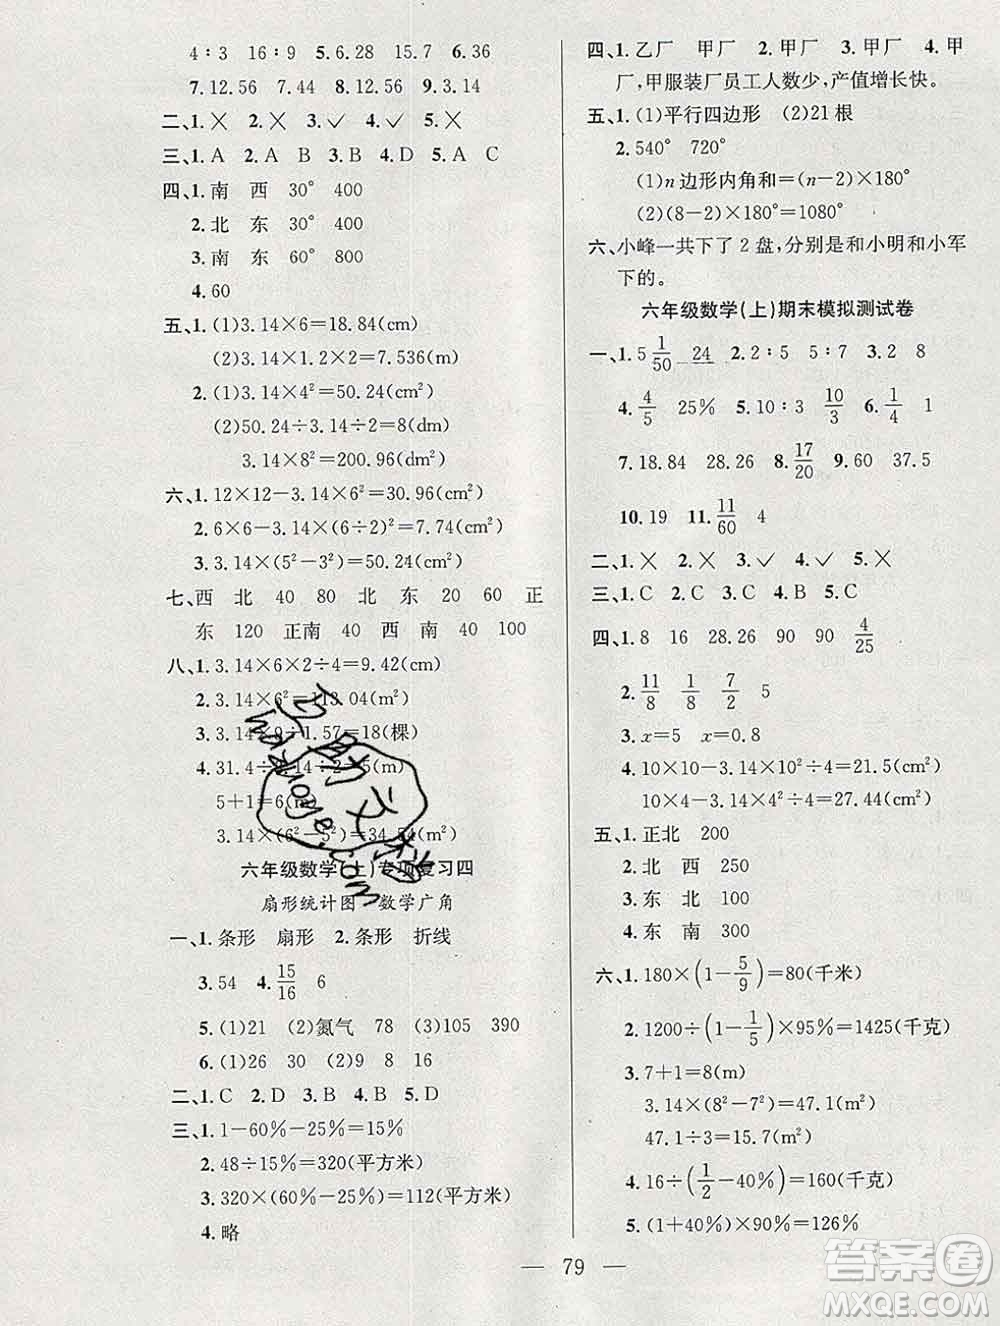 4∶3　16∶9　5.6.28　15.7　6.36
7.12.56　7.44　8.12.56　9.3.14
二、1.✕　2.✕　3.✓　4.✓　5.✕
三、1.A　2.A　B　3.B　4.D　5.A　C
四、1.南　西　30°　400
2.北　东　30°　400
3.南　东　60°　800
4.60
五、1.(1)3.14×6=18.84(cm)
(2)3.14×2.4=7.536(m)
2.(1)3.14×4²=50.24(cm²)
(2)50.24÷3.14÷2=8(dm)
3.14×8²=200.96(cm²)
六、1.12×12-3.14×6²=30.96(cm²)
2.6×6-3.14×(6÷2)²=7.74(cm²)
3.3.14×(5²-3²)=50.24(cm²)
七、西　北　40　80　北　东　20　60　正
东　120　正南　40　西　南　40　100
八、1.3.14×6×2÷4=9.42(cm)
2.3.14×6²=113.04(m²)
3.3.14×9÷1.57=18(棵)
4.31.4÷3.14÷2=5(m)
5+1=6(m)
3.14×(6²-5²)=34.54(m²)
六年级数学(上)专项复习四
扇形统计图　数学广角
一、1.条形　扇形　2.条形　折线
3.54　4.15/16　6
5.(1)21　(2)氮气　78　(3)105　390
6.(1)26　30　(2)9　8　16
二、1.C　2.D　3.B　4.B　5.D
三、1.1-60%-25%=15%
2.48÷15%=320(平方米)
3.320×(60%-25%)=112(平方米)
4.略
四、1.乙厂　甲厂　2.甲厂　3.甲厂　4.甲
厂,甲服装厂员工人数少,产值增长快。
五、1.(1)平行四边形　(2)21根
2.540°　720°
(1)n边形内角和=(n-2)×180°
(2)(8-2)×180°=1080°
六、小峰一共下了2盘,分别是和小明和小军
下的。
六年级数学(上)期末模拟测试卷
一、1.5 1/50　24　2.2∶5　5∶7　3.2　8
4.4/5　25%　5.10∶3　10/3　6.1/4　1
7.18.84　28.26　8.17/20　9.60　37.5
10.19　11.11/60　4
二、1.✕　2.✕　3.✓　4.✓　5.✕
三、1.C　2.C　3.B　4.B　5.C
四、1.8　16　28.26　90　90　4/25
2.11/8　1/8　7/2　5
3.x=5　x=0.8
4.10×10-3.14×10²÷4=21.5(cm²)
10×4-3.14×4²÷4=27.44(cm²)
五、1.正北　200
2.北　西　250
3.东北　东北
4.东　南　300
六、1.180×(1-5/9)=80(千米)
2.1200÷(1-1/5)×95%=1425(千克)
3.7+1=8(m)
3.14×(8²-7²)=47.1(m²)
47.1÷3=15.7(m²)
4.16÷(1/2-40%)=160(千克)
5.(1+40%)×90%=126%
— 79 —
答案圈
MXQE.COM